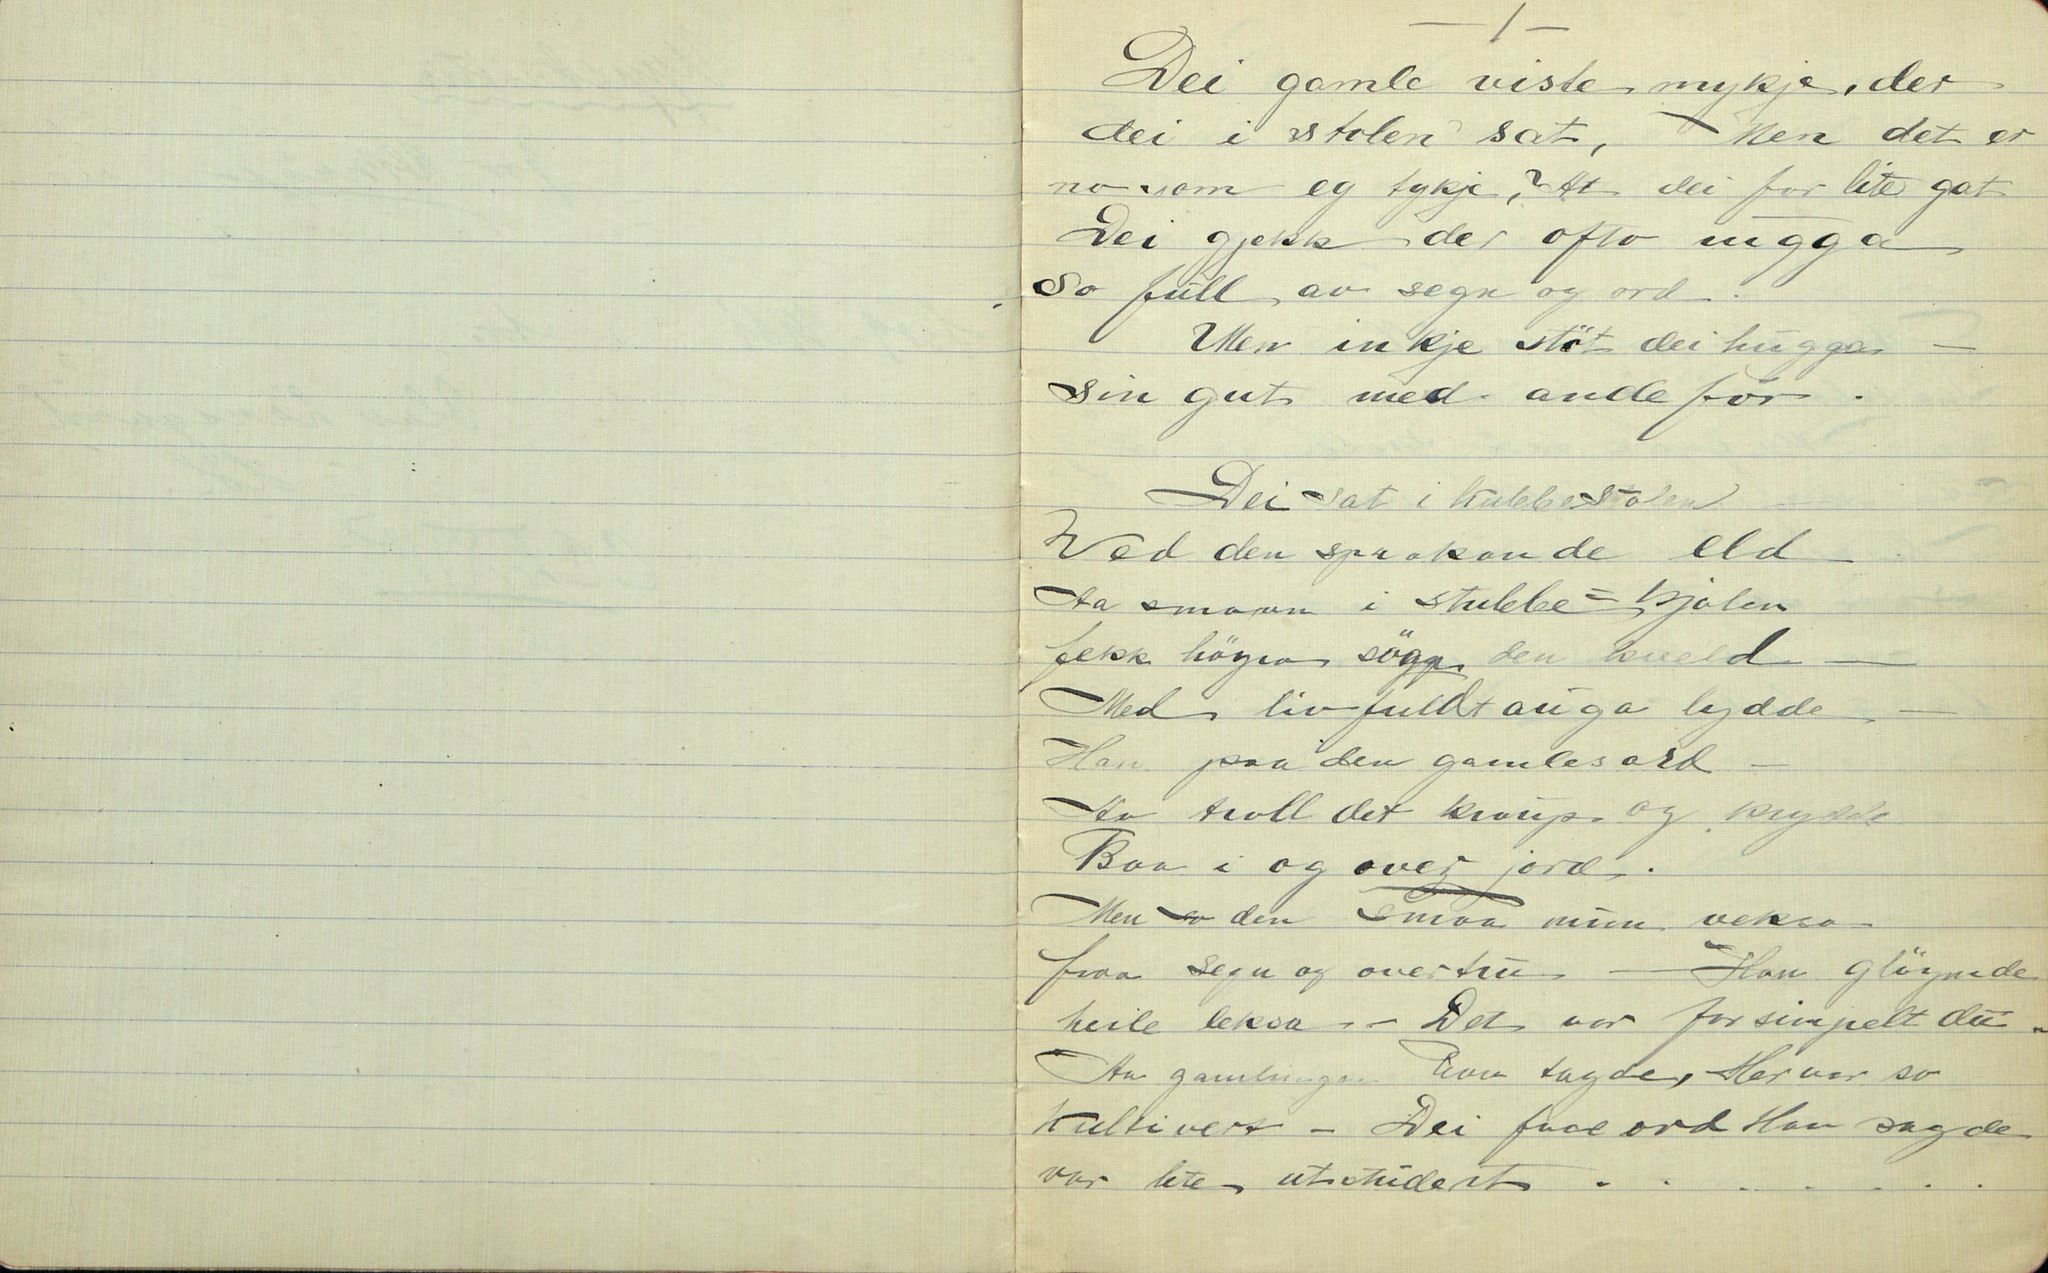 — 1 —
Dei gamle viste mykje, der
dei i stolen sat, Men det er
no som eg tykje, At dei for lite gat
Dei gjekk der ofto ũgga
So full av segn og ord.
Men inkje stöt dei hugga —
sin gut med andefor.
Dei sat i kubbestolen
Ved den sprakande eld —
Aa smaaen i stubbe=kjolen
fekk höyra sögge den kveld —
Med livfuldt auga lydde —
Han paa den gamles ord —
Aa troll det kraup og krydde
Baa i og over jord.
Men den smaa mũn veksa
fraa segn og overtru — Han glöymde
heile leksa — Det var for simpelt dũ —
Aa gamlingen tagde, Her var so
kultivert — Dei faae ord Han sagde
var lite utstudert . . . . . . .